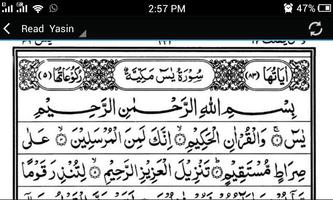 2:57 PM 47%
Read Yasin
اٰیَاتُهَا (٨٣) سُوْرَةُ يٰسٓ مَكِّيَّةٌ رُكُوْعَاتُهَا (٥)
بِسْمِ اللهِ الرَّحْمٰنِ الرَّحِيْمِ
يٰسٓ ۝ وَالْقُرْاٰنِ الْحَكِيْمِ ۝ اِنَّكَ لَمِنَ الْمُرْسَلِيْنَ ۝ عَلٰى
صِرَاطٍ مُّسْتَقِيْمٍ ۝ تَنْزِيْلَ الْعَزِيْزِ الرَّحِيْمِ ۝ لِتُنْذِرَ قَوْمًا